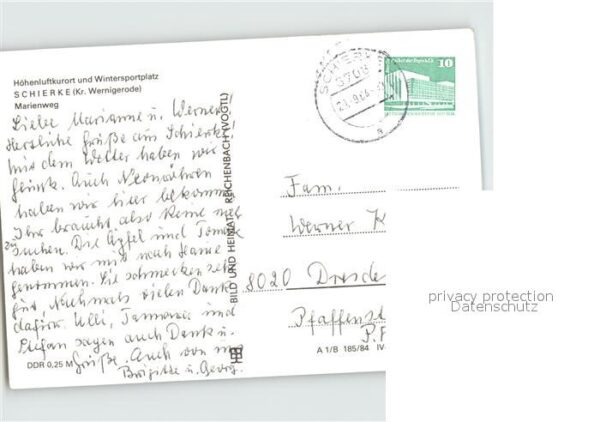 Höhenluftkurort und Wintersportplatz
SCHIERKE (Kr. Wernigerode)
Marienweg
Liebe Marianne u. Werner
Herzliche Grüße aus Schierke
mit dem Wetter haben wir
Glück. Auch
haben wir hier bekommen
Ihr braucht also keine mehr
zu
suchen. Die Äpfel und Tomaten
haben wir mit nach Hause
genommen. Sie schmecken sehr
gut, Nochmals vielen Dank
dafür. Ulli, Tamara und
Stefan sagen auch Danke u.
Grüße. Auch von uns
Brigitte u. Georg.
DDR 0,25 M
BILD UND HEIMAT REICHENBACH (VOGTL)
SCHIERKE
3709
10
Fam.
Werner K
8020 Dresde
Pfaffenst
P.F
A 1/B 185/84 IV
privacy protection
Datenschutz